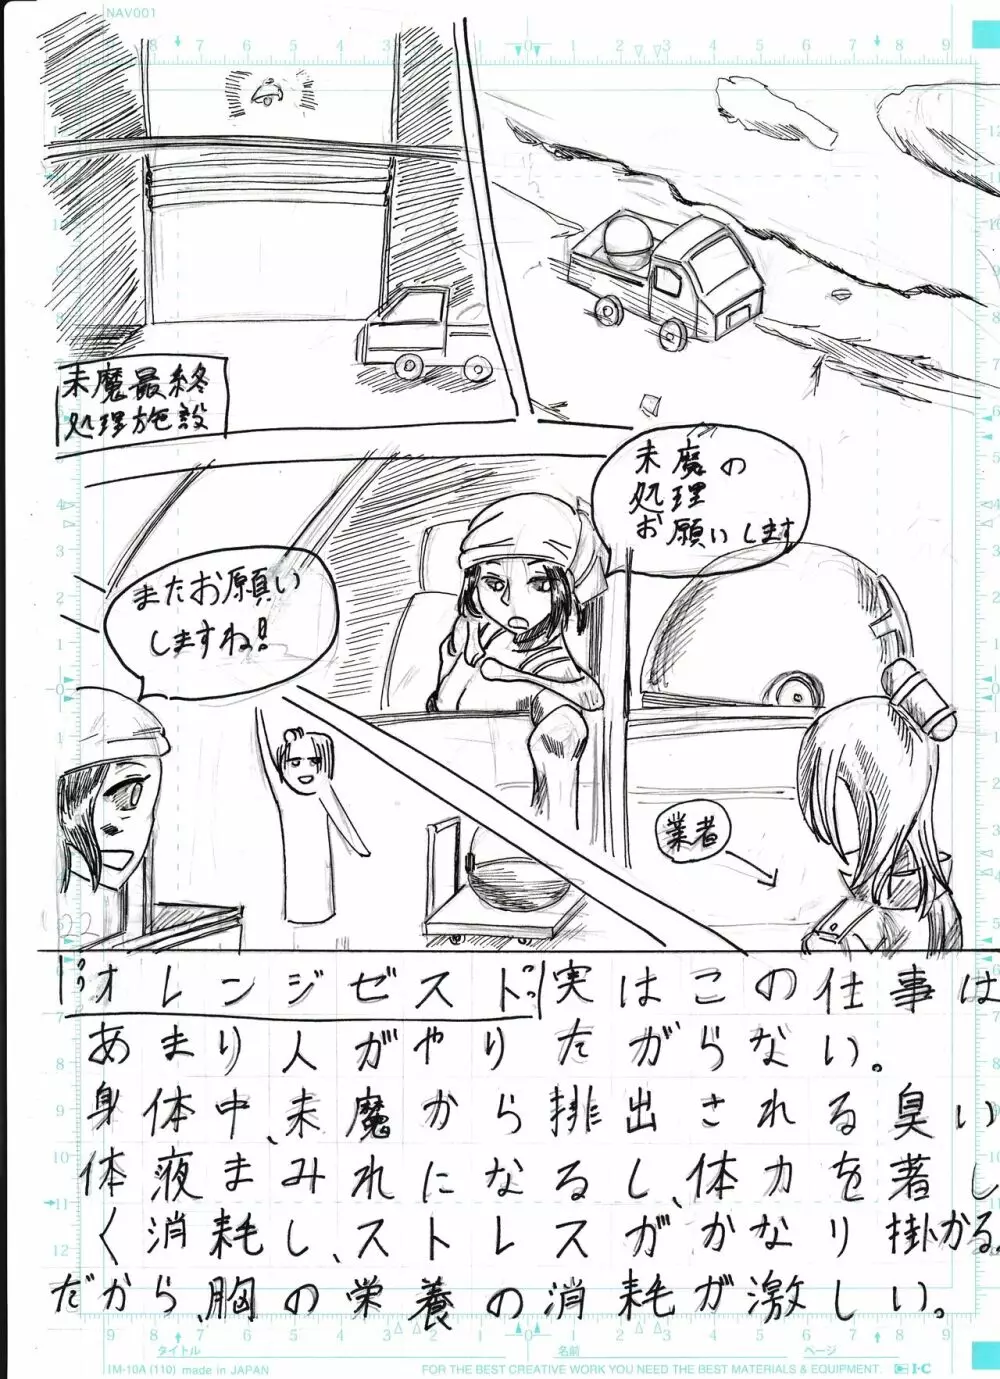 NAV001
未魔最終
処理施設
未魔の
処理
お願いします
またお願い
しますね!
業者
オレンジゼスト 実はこの仕事は
あまり人がやりたがらない。
身体中、未魔から排出される臭い
体液まみれになるし、体力を著し
く消耗し、ストレスがかなり掛かる。
だから、胸の栄養の消耗が激しい。
タイトル
名前
ページ
IM-10A (110) made in JAPAN
FOR THE BEST CREATIVE WORK YOU NEED THE BEST MATERIALS & EQUIPMENT.
I·C